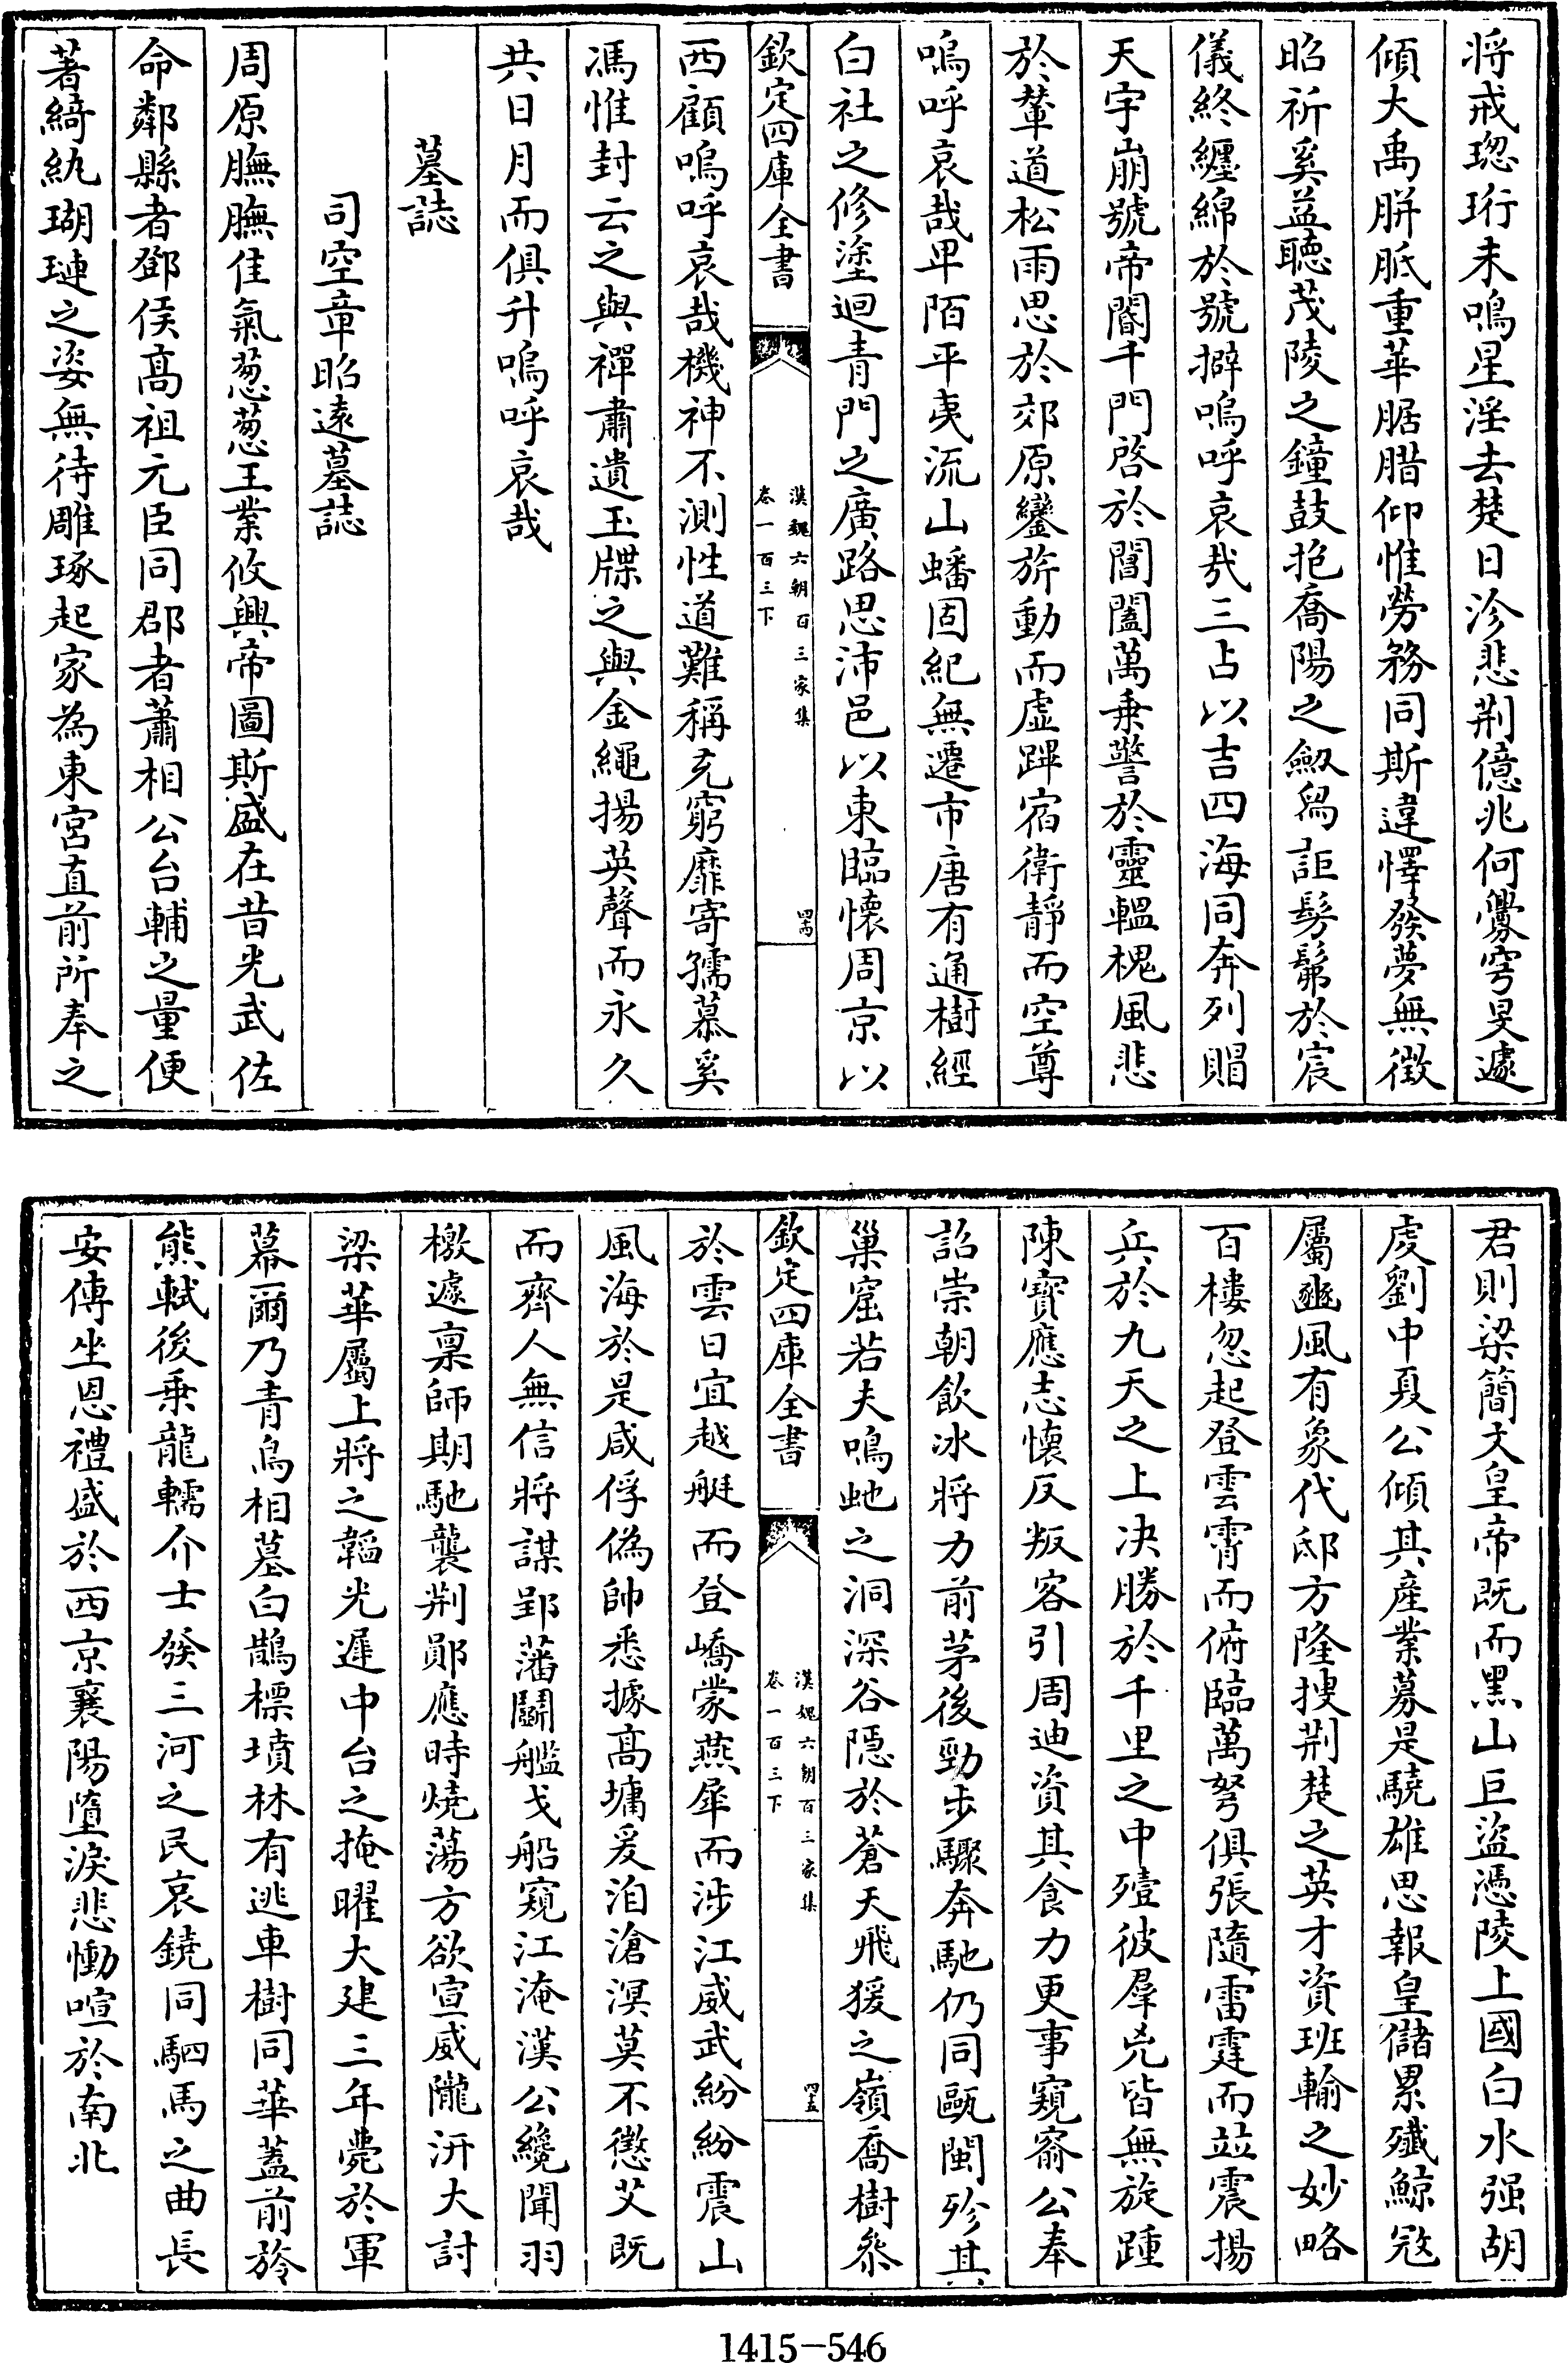 將戒璁珩未鳴星淫去楚日沴悲荆億兆何釁穹旻遽
傾大禹胼胝重華腒腊仰惟勞務同斯違懌發夢無徴
昭祈奚益聽茂陵之鐘鼓抱喬陽之劔舄詎髣髴於宸
儀終纏綿於號擗嗚呼哀哉三占以吉四海同奔列賵
天宇崩號帝閽千門啓於閶闔萬乗警於靈轀槐風悲
於輦道松雨思於郊原鑾旂動而虚蹕宿衛靜而空尊
嗚呼哀哉畢陌平夷流山蟠固紀無遷市唐有通樹經
白社之修塗迴青門之廣路思沛邑以東臨懷周京以
欽定四庫全書
漢魏六朝百三家集
卷一百三下
四十四
西顧嗚呼哀哉機神不測性道難稱充窮靡寄孺慕奚
馮惟封云之與禪肅遺玉牒之與金繩揚英聲而永久
共日月而俱升嗚呼哀哉
墓誌
司空章昭遠墓誌
周原膴膴佳氣葱葱王業攸興帝圖斯盛在昔光武佐
命鄰縣者鄧侯髙祖元臣同郡者蕭相公台輔之量便
著綺紈瑚璉之姿無待雕琢起家為東宮直前所奉之
君則梁簡文皇帝既而黑山巨盜憑陵上國白水强胡
虔劉中夏公傾其產業募是驍雄思報皇儲累殱鯨冦
屬豳風有象代邸方隆搜荆楚之英才資班輸之妙略
百樓忽起登雲霄而俯臨萬弩俱張隨雷霆而竝震揚
兵於九天之上决勝於千里之中殪彼羣兇皆無旋踵
陳寳應志懷反叛客引周迪資其食力更事窺窬公奉
詔崇朝飲冰將力前茅後勁步驟奔馳仍同甌閩殄其
巢窟若夫鳴虵之洞深谷隠於蒼天飛猨之嶺喬樹叅
欽定四庫全書
漢魏六朝百三家集
卷一百三下
四十五
於雲日宜越艇而登嶠蒙燕犀而涉江威武紛紛震山
風海於是咸俘偽帥悉據髙墉爰洎滄溟莫不懲艾既
而齊人無信將謀郢藩鬭艦戈船窺江淹漢公纔聞羽
檄遽禀師期馳襲荆郧應時燒蕩方欲宣威隴汧大討
梁華屬上將之韜光遲中台之掩曜大建三年薨於軍
幕爾乃青烏相墓白鵲標墳林有逃車樹同華蓋前旍
熊軾後乗龍轜介士發三河之民哀鐃同駟馬之曲長
安傳坐恩禮盛於西京襄陽墮淚悲慟喧於南北
1415-546